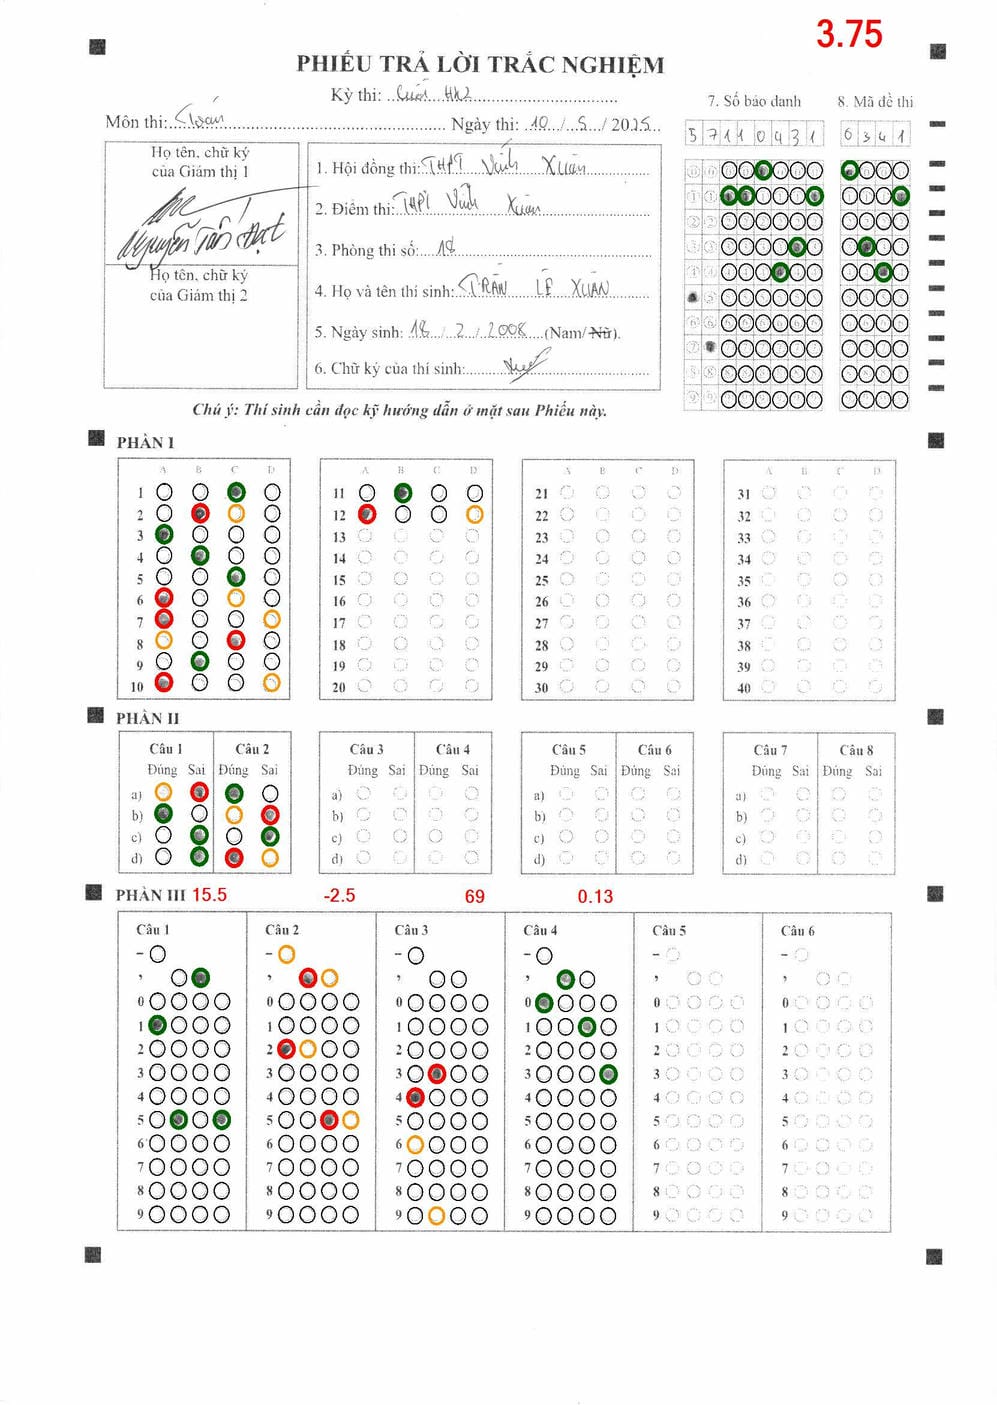 3.75
PHIẾU TRẢ LỜI TRẮC NGHIỆM
Kỳ thi: Cuối HK2
Môn thi: Toán Ngày thi: 10/5/2025
Họ tên, chữ ký
của Giám thị 1
Nguyễn Tấn Đạt
Họ tên, chữ ký
của Giám thị 2
1. Hội đồng thi: THPT Vĩnh Xuân
2. Điểm thi: THPT Vĩnh Xuân
3. Phòng thi số: 18
4. Họ và tên thí sinh: TRẦN LÊ XUÂN
5. Ngày sinh: 18/2/2008 (Nam/Nữ).
6. Chữ ký của thí sinh:
7. Số báo danh
5 7 1 1 0 4 3 1
8. Mã đề thi
0 3 4 1
Chú ý: Thí sinh cần đọc kỹ hướng dẫn ở mặt sau Phiếu này.
PHẦN I
A B C D
1
2
3
4
5
6
7
8
9
10
A B C D
11
12
13
14
15
16
17
18
19
20
A B C D
21
22
23
24
25
26
27
28
29
30
A B C D
31
32
33
34
35
36
37
38
39
40
PHẦN II
Câu 1 Câu 2
Đúng Sai Đúng Sai
a)
b)
c)
d)
Câu 3 Câu 4
Đúng Sai Đúng Sai
a)
b)
c)
d)
Câu 5 Câu 6
Đúng Sai Đúng Sai
a)
b)
c)
d)
Câu 7 Câu 8
Đúng Sai Đúng Sai
a)
b)
c)
d)
PHẦN III 15.5 -2.5 69 0.13
Câu 1 Câu 2 Câu 3 Câu 4 Câu 5 Câu 6
- - - - - -
, , , , , ,
0 0 0 0 0 0
1 1 1 1 1 1
2 2 2 2 2 2
3 3 3 3 3 3
4 4 4 4 4 4
5 5 5 5 5 5
6 6 6 6 6 6
7 7 7 7 7 7
8 8 8 8 8 8
9 9 9 9 9 9